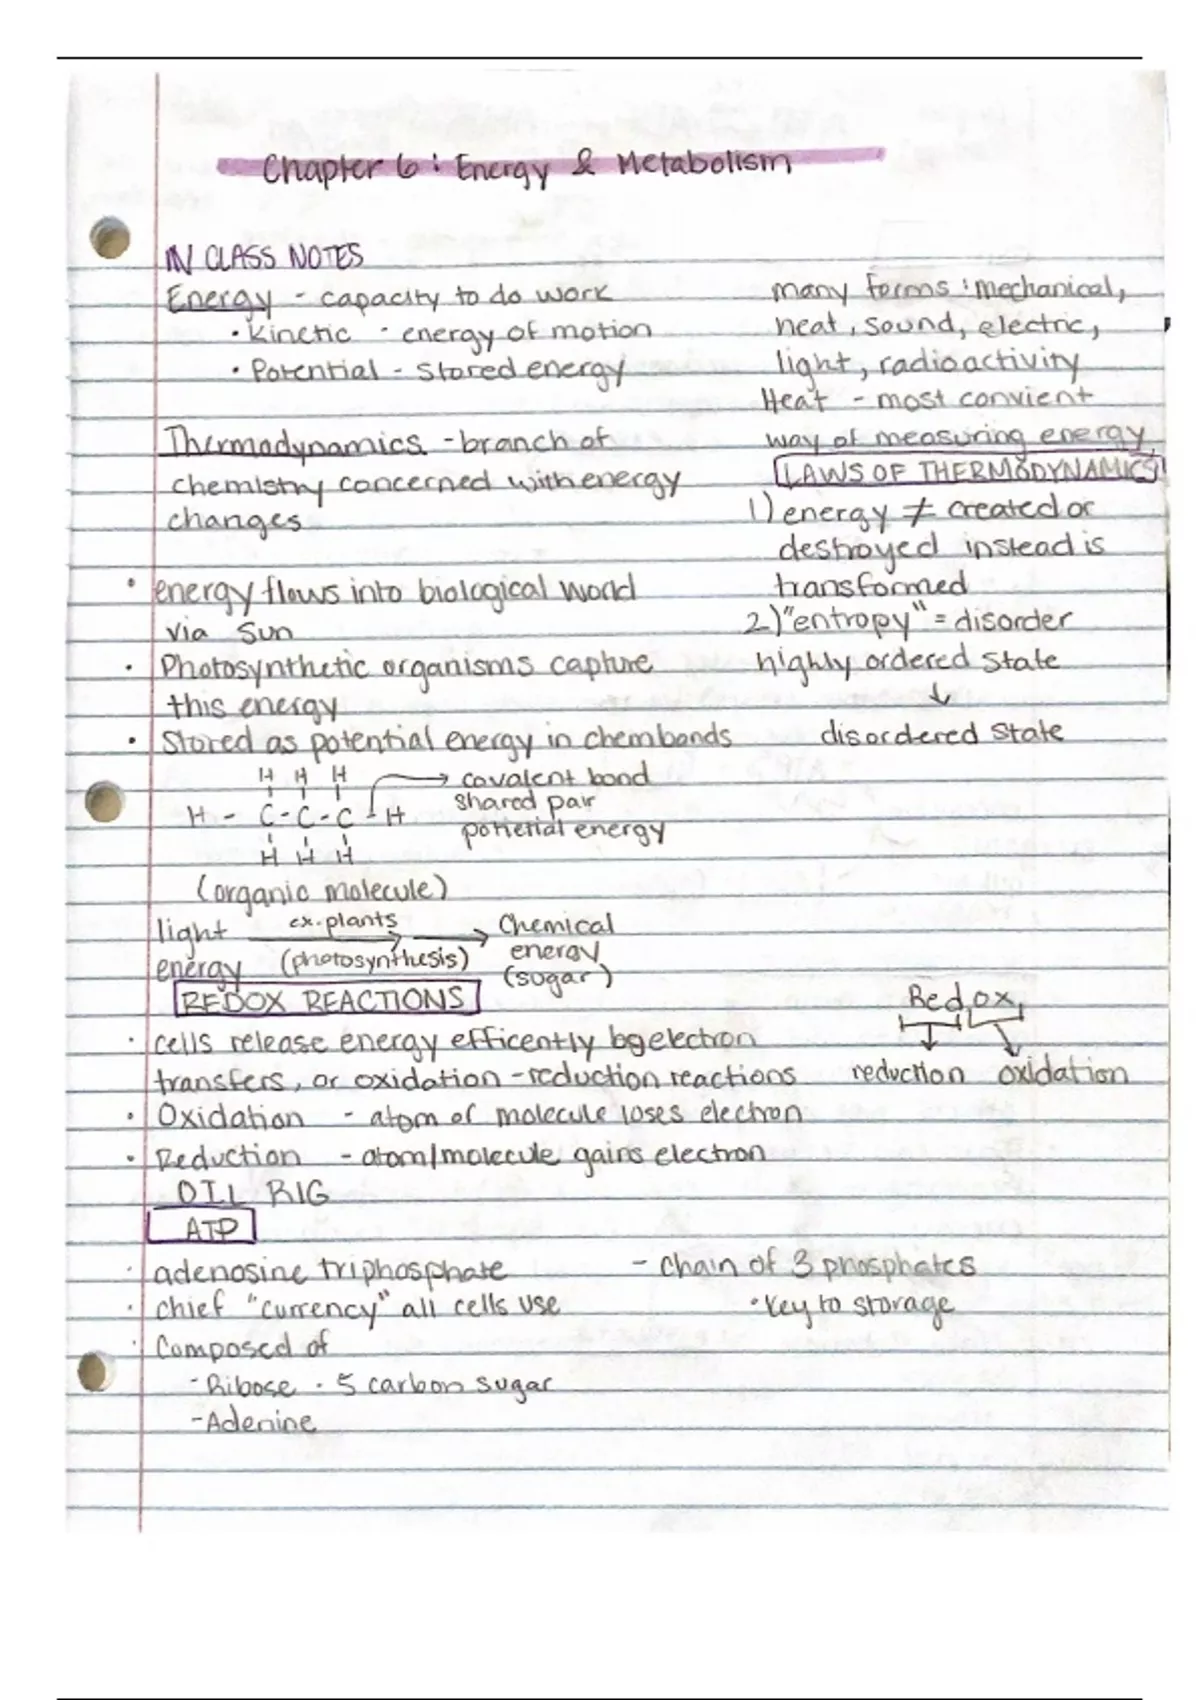 Chapter 6: Energy & Metabolism
IN CLASS NOTES
Energy - capacity to do work
• Kinetic - energy of motion
• Potential - stored energy
many forms: mechanical,
heat, sound, electric,
light, radioactivity
Heat - most convient
way of measuring energy
Thermodynamics - branch of
chemistry concerned with energy
changes
LAWS OF THERMODYNAMICS
1) energy ≠ created or
destroyed instead is
transformed
2) "entropy" = disorder
highly ordered state
↓
disordered state
• energy flows into biological world
via sun
• Photosynthetic organisms capture
this energy
• Stored as potential energy in chem bonds
H H H
H - C - C - C - H
H H H
→ covalent bond
shared pair
potietial energy
(organic molecule)
light energy
ex. plants
(photosynthesis)
→ Chemical
energy
(sugar)
REDOX REACTIONS
• cells release energy efficently by electron
transfers, or oxidation-reduction reactions
• Oxidation - atom or molecule loses electron
• Reduction - atom/molecule gains electron
OIL RIG
Redox
reduction oxidation
ATP
• adenosine triphosphate
• chief "currency" all cells use
• Composed of
- Ribose • 5 carbon sugar
- Adenine
- chain of 3 phosphates
• key to storage